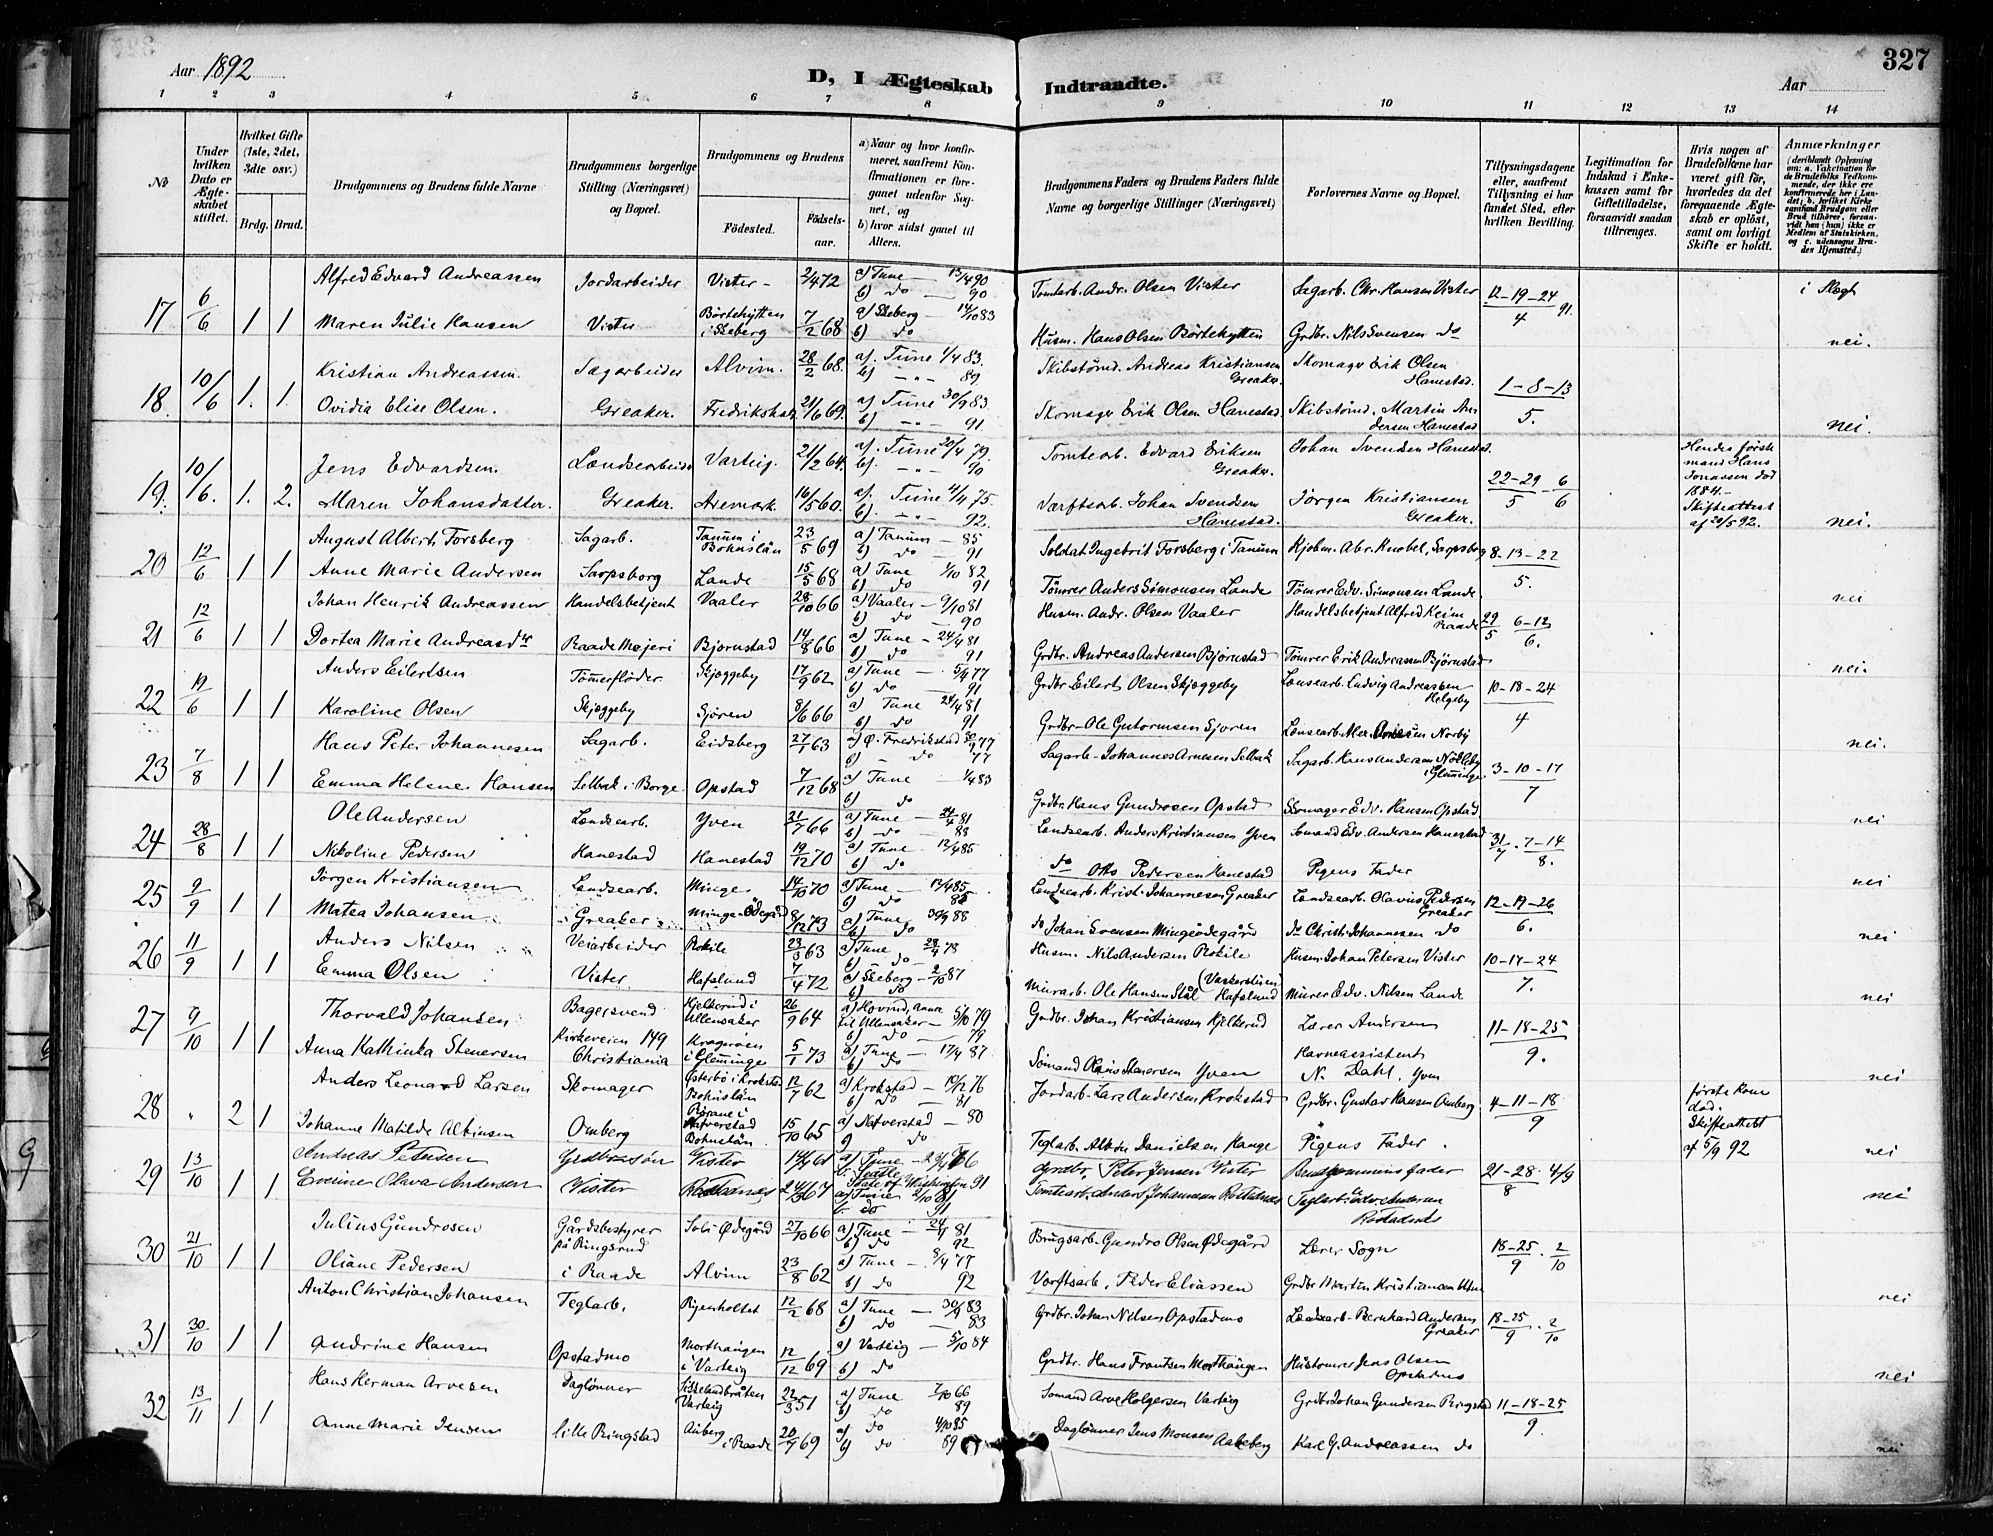 Aar 1892
D, I Ægteskab Indtraadte.
327
Aar
1 2 3 4 5 6 7 8 9 10 11 12 13 14
No
Under hvilken Dato er Ægteskabet stiftet.
Hvilket Gifte (1ste, 2det, 3die osv.)
Brdg. Brud.
Brudgommens og Brudens fulde Navne
Brudgommens borgerlige Stilling (Næringsvei) og Bopæl.
Brudgommens og Brudens
Födested. Födselsaar.
a) Naar og hvor konfirmeret, saafremt Konfirmationen er foregaaet udenfor Sognet, og
b) hvor sidst gaaet til Alters.
Brudgommens Faders og Brudens Faders fulde Navne og borgerlige Stillinger (Næringsvei)
Forlovernes Navne og Bopæl.
Tillysningsdagene eller, saafremt Tillysning ei har fundet Sted, efter hvilken Bevilling.
Legitimation for Indskud i Enkekassen samt for Giftetilladelse, forsaavidt saadan tiltrænges.
Hvis nogen af Brudefolkene har været gift för, hvorledes da det foregaaende Ægteskab er oplöst, samt om lovligt Skifte er holdt.
Anmærkninger (deriblandt Oplysning om: a. Vakcination for de Brudefolks Vedkommende, der ikke ere konfirmerede her i Landet; b. hvilket Kirkesamfund Brudgom eller Brud tilhörer, forsaavidt han (hun) ikke er Medlem af Statskirken, og c. udensogns Brudes Hjemsted.)
17 6/6 1 1 Alfred Edvard Andreassen Jordarbeider Vister 2/4 72 a) Tune 13/4 90 b) do 90 Tomtarb. Andr. Olsen Vister Sagarb. Chr. Hansen Vister 12-19-24/4 91. i Slegt
Maren Julie Hansen Vister Börtehytten i Skeberg 7/2 68 a) Skeberg 14/10 83 b) do Husm. Hans Olsen Börtehytten Grdbr. Nils Svensen do nei.
18. 10/6 1. 1. Kristian Andreassen. Sagarbeider Alvim. 28/2 68. a). Tune 1/4 83. b) -"- 89 Skibstømd. Andreas Kristiansen Greaker. Skomager Erik Olsen Hanestad. 1-8-13/5.
Ovidia Elise Olsen. Greaker. Fredrikshald 21/6 69. a) Tune 30/9 83. b) -"- 91. Skomager Erik Olsen Hanestad. Skibstømd. Martin Andersen Hanestad nei.
19. 10/6. 1. 2. Jens Edvardsen. Landsearbeider Varteig. 21/2 64. a). Tune 20/4 79. b). -"- 90 Tomtearb. Edvard Eriksen Greaker. Johan Svendsen Hanestad. 22-29/5 - 6/6 Hendes første mand Hans Jonassen död 1884. - Skifteattest af 20/5 92.
Maren Johansdatter. Greaker. Aremark. 16/5 60. a). Tune 4/4 75. b). -"- 92. Værftsarb. Johan Svendsen Hanestad. Jörgen Kristiansen Greaker. nei.
20 12/6 1 1 August Albert Forsberg Sagarb. Tanum i Bohuslän 23/5 69 a) Tanum - 85 b) do 91 Soldat Ingebrit Forsberg i Tanum Kjobm. Abr. Knobel, Sarpsborg 8-13-22/5.
Anne Marie Andersen Sarpsborg Lande 15/5 68 a) Tune 1/10 82 b) do 91 Tömrer Anders Simonsen Lande Tömrer Edv. Simonsen Lande nei
21 12/6 1 1 Johan Henrik Andreassen Handelsbetjent Vaaler 28/10 66 a) Vaaler - 9/10 81 b) do 90 Husm. Andr. Olsen Vaaler Handelsbetjent Alfred Keim Raade 29/5 6-12/6.
Dortea Marie Andreasdr Raade Mejeri Bjørnstad 14/8 66 a) Tune - 24/4 81 b) do 91 Grdbr. Andreas Andersen Bjørnstad Tömrer Erik Andreassen Bjørnstad nei.
22 19/6 1 1 Anders Eilertsen Tömerfløder Skjæggeby 17/9 62 a) Tune - 5/4 77 b) do 91 Grdbr Eilert Olsen Skjæggeby Lænsearb. Ludvig Andreassen Helgeby 10-18-24/4
Karoline Olsen Skjæggeby Sjøren 8/6 66 a) Tune 24/4 81 b) do 91 Grdbr. Ole Gutormsen Sjoren Lænsearb. Norby nei.
23 7/8 1 1 Hans Peter Johannesen Sagarb. Eidsberg 27/1 63 a) Ø. Fredrikstad 30/9 77 b) - do 77 Sagarb. Johannes Arnesen Selbak Sagarb. Hans Andersen Nökleby i Glemminge 3-10-17/7
Emma Helene Hansen Selbak i Borge Opstad 7/12 68 a) Tune 1/4 83 b) do Grdbr. Hans Gundrosen Opstad Skomager Edv. Hansen Opstad. nei
24 28/8 1 1 Ole Andersen Lændsearb. Yven 21/7 66 a) Tune - 24/4 81 b) do 83 Lændsearb. Anders Kristiansen Yven Sömand Edv. Andersen Hanestad 31/7. 7-14/8.
Nikoline Pedersen Hanestad Hanestad 19/12 70 a) Tune 12/4 85 b) do do Otto Pedersen Hanestad Pigens Fader nei
25 9/9 1 1 Jörgen Kristiansen Landsearb. Minge 14/10 70 a) Tune 12/4 85 b) do 85 Landsearb. Krist. Johannesen Greaker Landsearb. Olavus Pedersen Greaker 12-19-26/6.
Matea Johansen Greaker Minge-Ödegård 8/12 73 a) Tune 30/9 88 b) do do Johan Svensen Mingeödegård do Christ. Johannesen do nei
26 11/9 1 1 Anders Nilsen Veiarbeider Rokile 23/3 63 a) Tune 28/4 78 b) - do - Husm. Nils Andersen Rokile Husm. Johan Petersen Vister 10-17-24/7.
Emma Olsen Vister Hafslund 7/4 72 a) Skeberg - 2/10 87 b) do Murarb. Ole Hansen Stål Hafslund Murer Edv. Nilsen Lande nei
27 9/10 1 1 Thorvald Johansen Bagersvend Kjelkerud i Ullensaker 26/9 64 a) Hovind, Annex til Ullensaker - 5/10 79 b) do 79 Grdbr. Johan Kristiansen Kjelkerud Lærer Andersen 11-18-25/9.
Anna Kathinka Stenersen Kirkeveien 149 Christiania Kragerøen i Glemminge 5/1 73 a) Tune - 17/4 87 b) do Sömand Stenersen Yven Havneassistent N. Dahl, Yven nei
28 " 2 1 Anders Leonard Larsen Skomager Østerbö i Krokstad Bohuslän 12/7 62 a) Krokstad - 10/12 76 b) do - 81 Jordarb. Lars Andersen Krokstad Grdbr. Gustav Hansen Omberg 4-11-18/9 første kone död. Skifteattest af 5/9 92
Johanne Matilde Albinsen Omberg Rörane i Nafverstad Bohuslän 15/10 65 a) Nafverstad - 80 b) do Teglarb. Albin Danielsen Hauge Pigens Fader. nei
29 13/10 1 1 Andreas Petersen Grdbrsön Vister 14/4 61 a) Tune - b. Seattle State of Washington 91 Grdbr. Peter Jensen Vister Brudgommens fader 21-28/8. 4/9
Evenine Olava Andersen Vister 67 a) Tune 2/10 81 b. do 91 Tomtearb. Anders Johannesen Teglarb. Andersen nei
30 21/10 1 1 Julius Gundrosen Gårdsbestyrer på Ringsrud Soli Ødegård 27/10 66 a) Tune - 24/4 81 b) do 92 Brugsarb. Gundro Olsen Ødegård Lærer Sogn 18-25/9. 2/10
Oliane Pedersen i Raade Alvim 23/8 62 a) Tune - 8/4 77 b) do 92 Værftsarb. Peder Eliassen Grdbr Martin Kristiansen nei
31 30/10 1 1 Anton Christian Johansen Teglarb. Ryenholtet 12/2 68 a) Tune - 30/9 83 b) do 83 Grdbr. Johan Nilsen Opstadmo Lændsearb. Bernhard Andersen Greaker 18-25/9. 2/10
Andrine Hansen Opstadmo Morthaugen i Varteig 12/12 69 a) Varteig - 5/10 84 b) do Grdbr. Hans Frantsen Morthaugen Hustomrer Jens Olsen Opstadmo nei
32 13/11 1 1 Hans Herman Arvesen Daglønner Sisselandbråten Varteig 22/3 51 a) Tune 7/10 66 b) do 89 Somand Arve Holgersen Varteig Grdbr Johan Gundersen Ringstad 11-18-25/9.
Anne Marie Jensen lille Ringstad Auberg i Raade 20/7 69 a) do 4/10 85 b) do 89 Daglönner Jens Monsen Karl G. Andreassen do nei